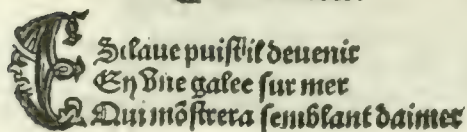 ESclaue puist il deuenir
En vne galee sur mer
Qui mõstrera semblant daimer